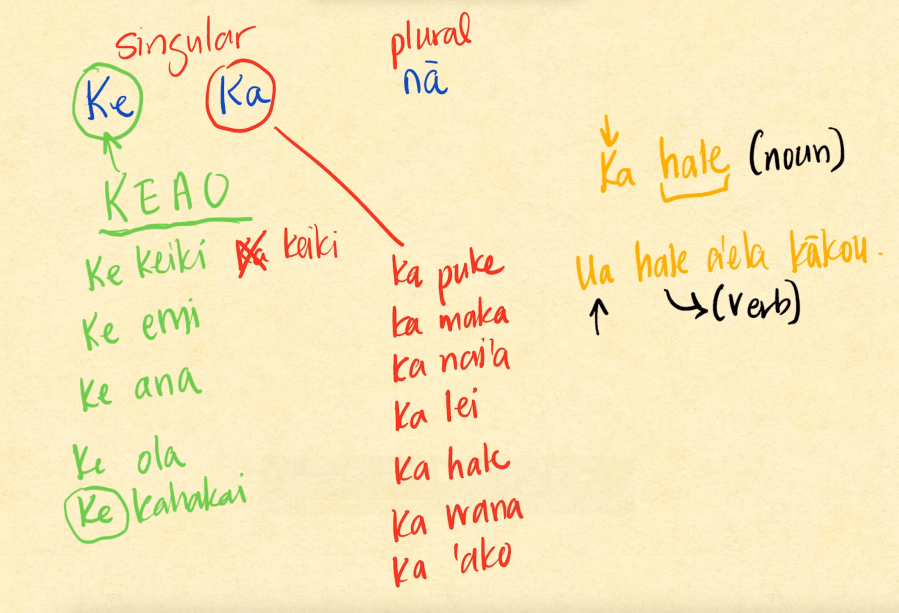 singular
plural
Ke Ka nā
KEAO
Ke keiki Ka keiki
Ke emi
Ke ana
Ke ola
Ke kahakai
Ka puke
Ka maka
Ka nai'a
Ka lei
Ka hale
Ka wana
Ka 'ako
Ka hale (noun)
Ua hale a'ela kākou.
(verb)